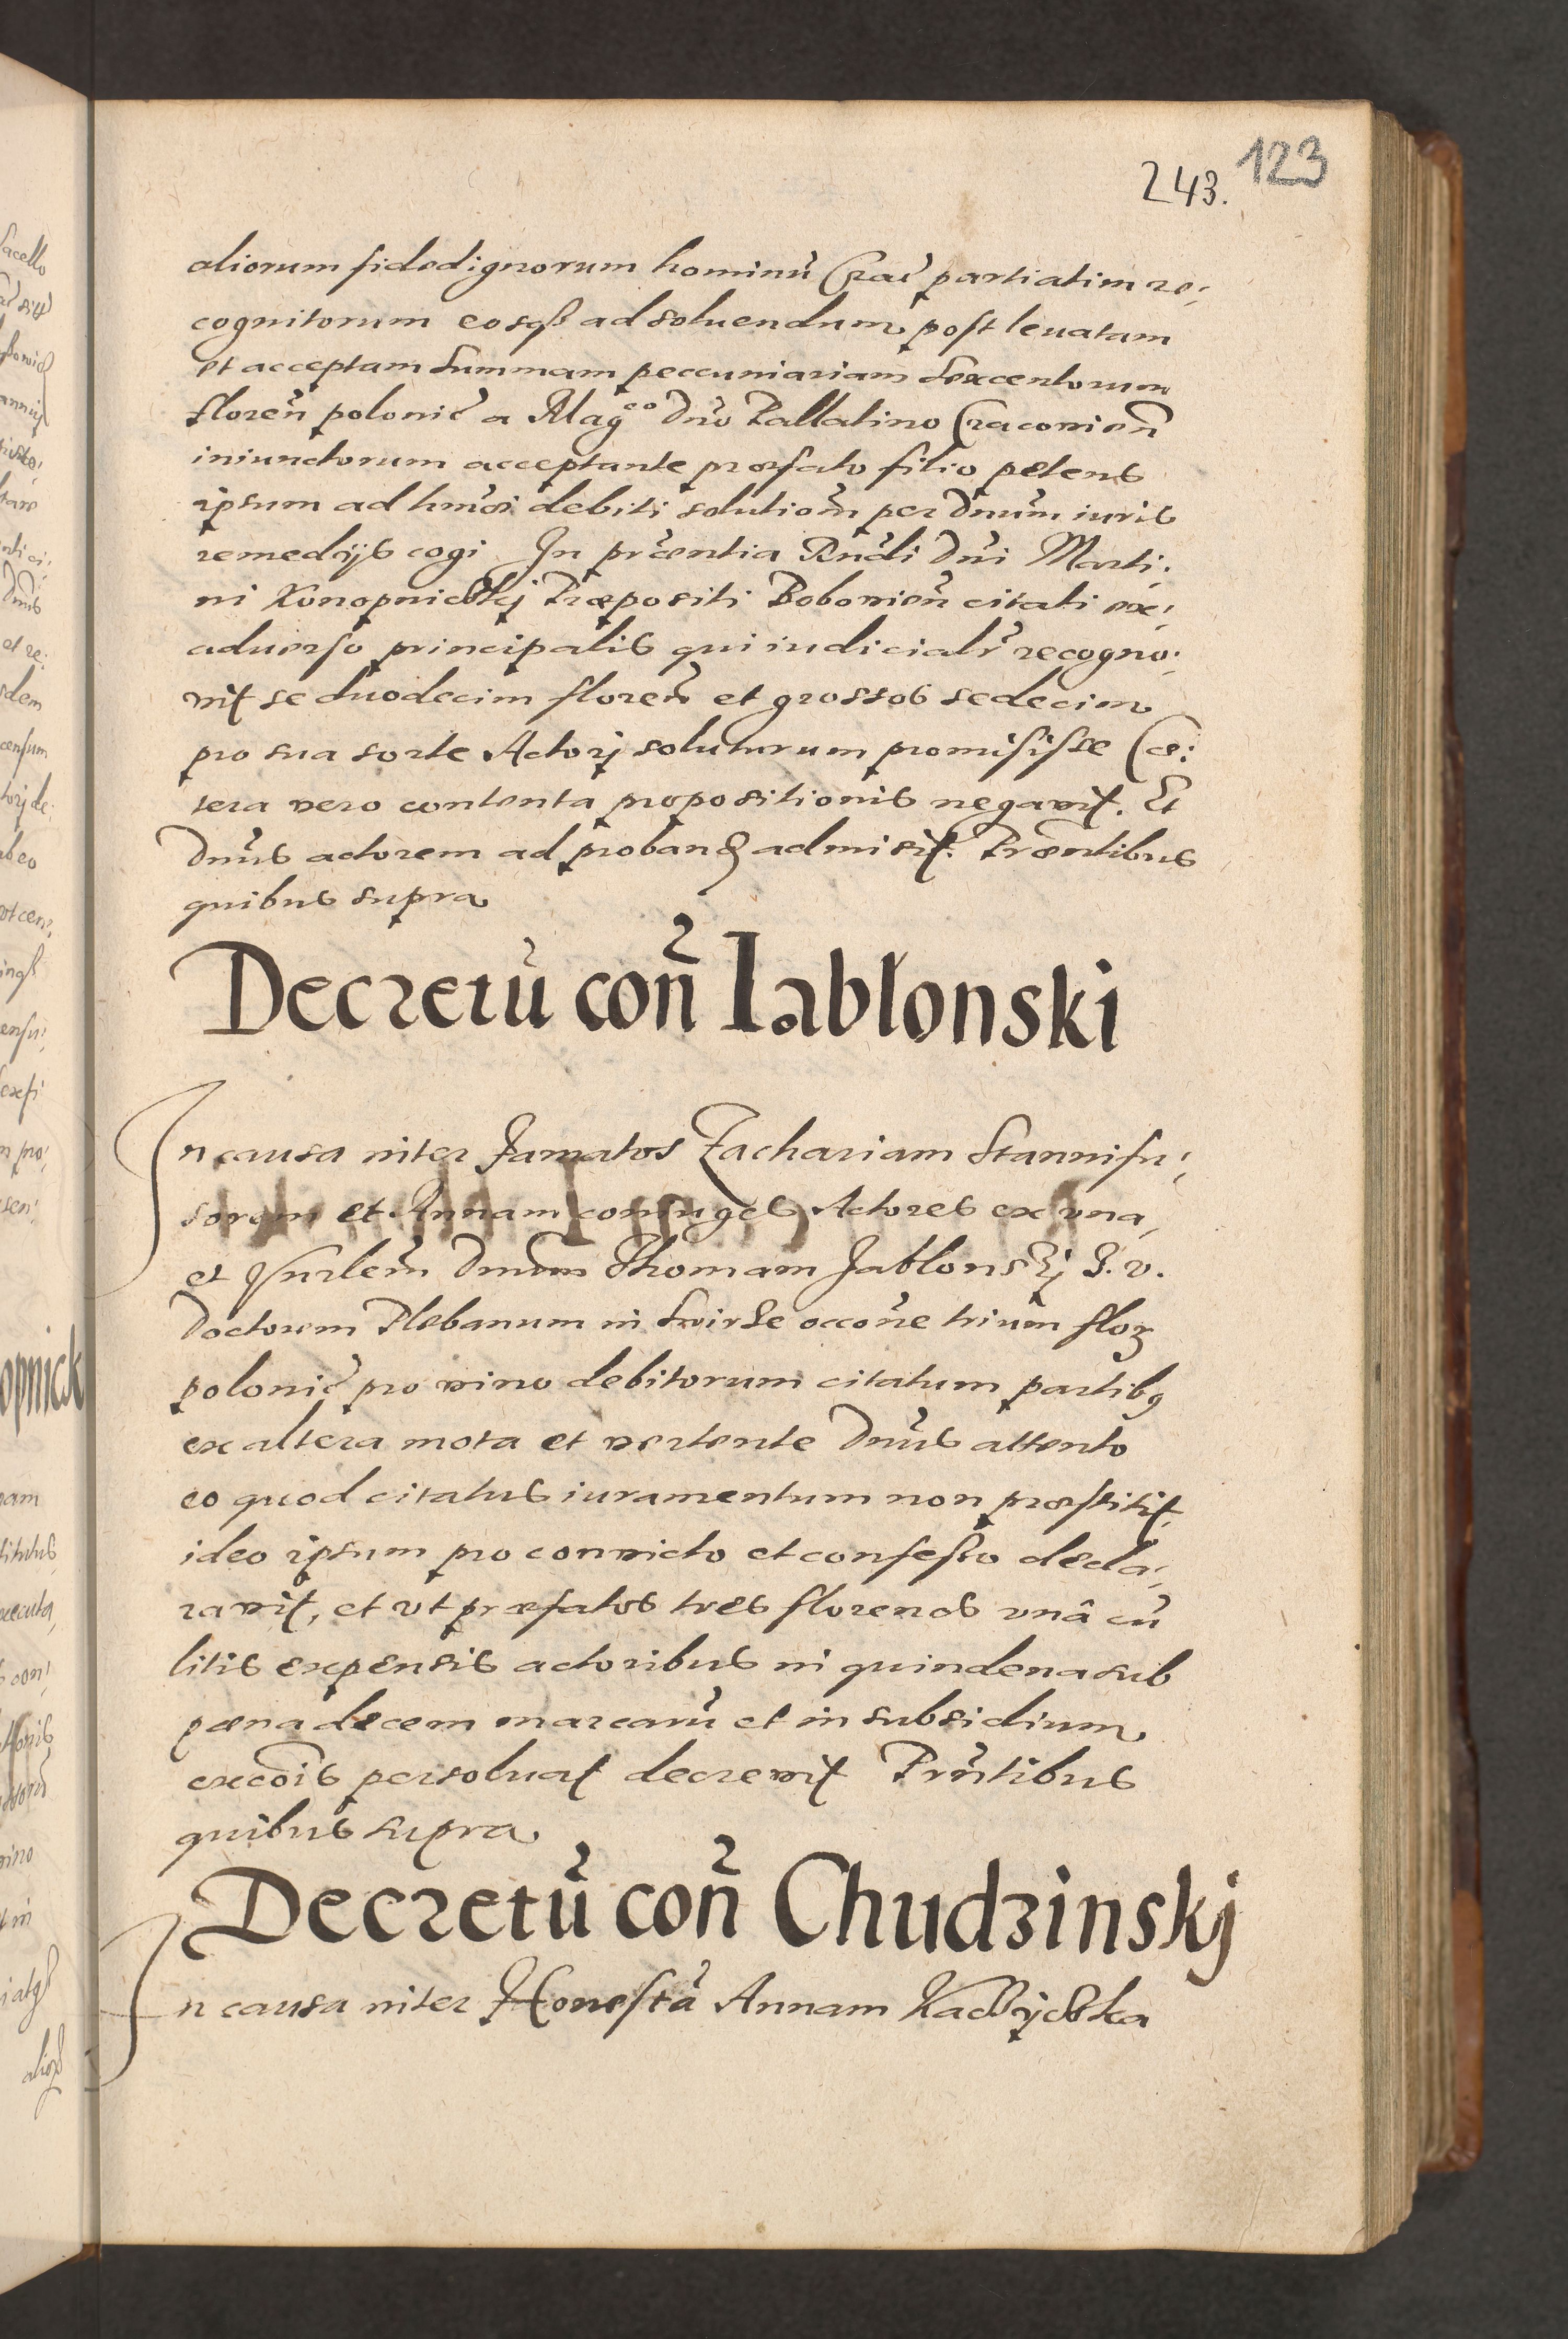 243. 123
aliorum fidedignorum hominũ Crac̃ partiatim re:
cognitorum eosqß ad soluendum post leuatam
et acceptam summam peccuniariam sexcentorum
floreñ polonic̃ a Magco Dño Pallatino Cracouieñ
iniunctorum acceptante præfato filio petens
ipsum ad hmõi debiti solutiom̃ per Dnũm iuris
remedijs cogi In prc̃entia Rndi Dñi Marti:
ni Konopniczkj Præpositi Bobouieñ citati ex:
aduerso principalis qui iudicialr̃ recogno:
uit se duodecim floreñ et grossos sedecim
pro sua sorte Actorj soluturum promisisse Cæ:
tera vero contenta propositionis negauit. Et
Dnũs actorem ad proband admisit. Præñtibus
quibus supra
Decretũ coñ Iablonski
In causa inter famatos Zachariam Stannifu:
sorem et Annam coniuges Actores ex vna
et Vnrlem̃ Dnũm Thomam Jablonskj J. V.
Doctorem Plebanum in Swirse occoñe trium flor
polonic̃ pro vino debitorum citatum partibq
ex altera mota et vertente Dnũs attento
eo quod citatus iuramentum non præstitit
ideo ipsum pro conuicto et confesso decla:
rauit, et vt præfatos tres florenos vnâ cũ
litis expensis actoribus in quindena sub
pœna decem marcarũ et in subsidium
excõis persoluat decreuit Prñtibus
quibus supra
Decretũ coñ Chudzinskj
In causa inter Honestã Annam